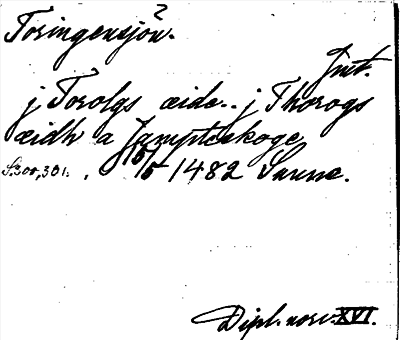 Toringensjön.
?
Jmt.
j Torolgs æide.. j Thorogs
æidh a Jamptæskoge
S. 300, 301. , 15/5 1482 Sunne.
Dipl. norv. XVI.